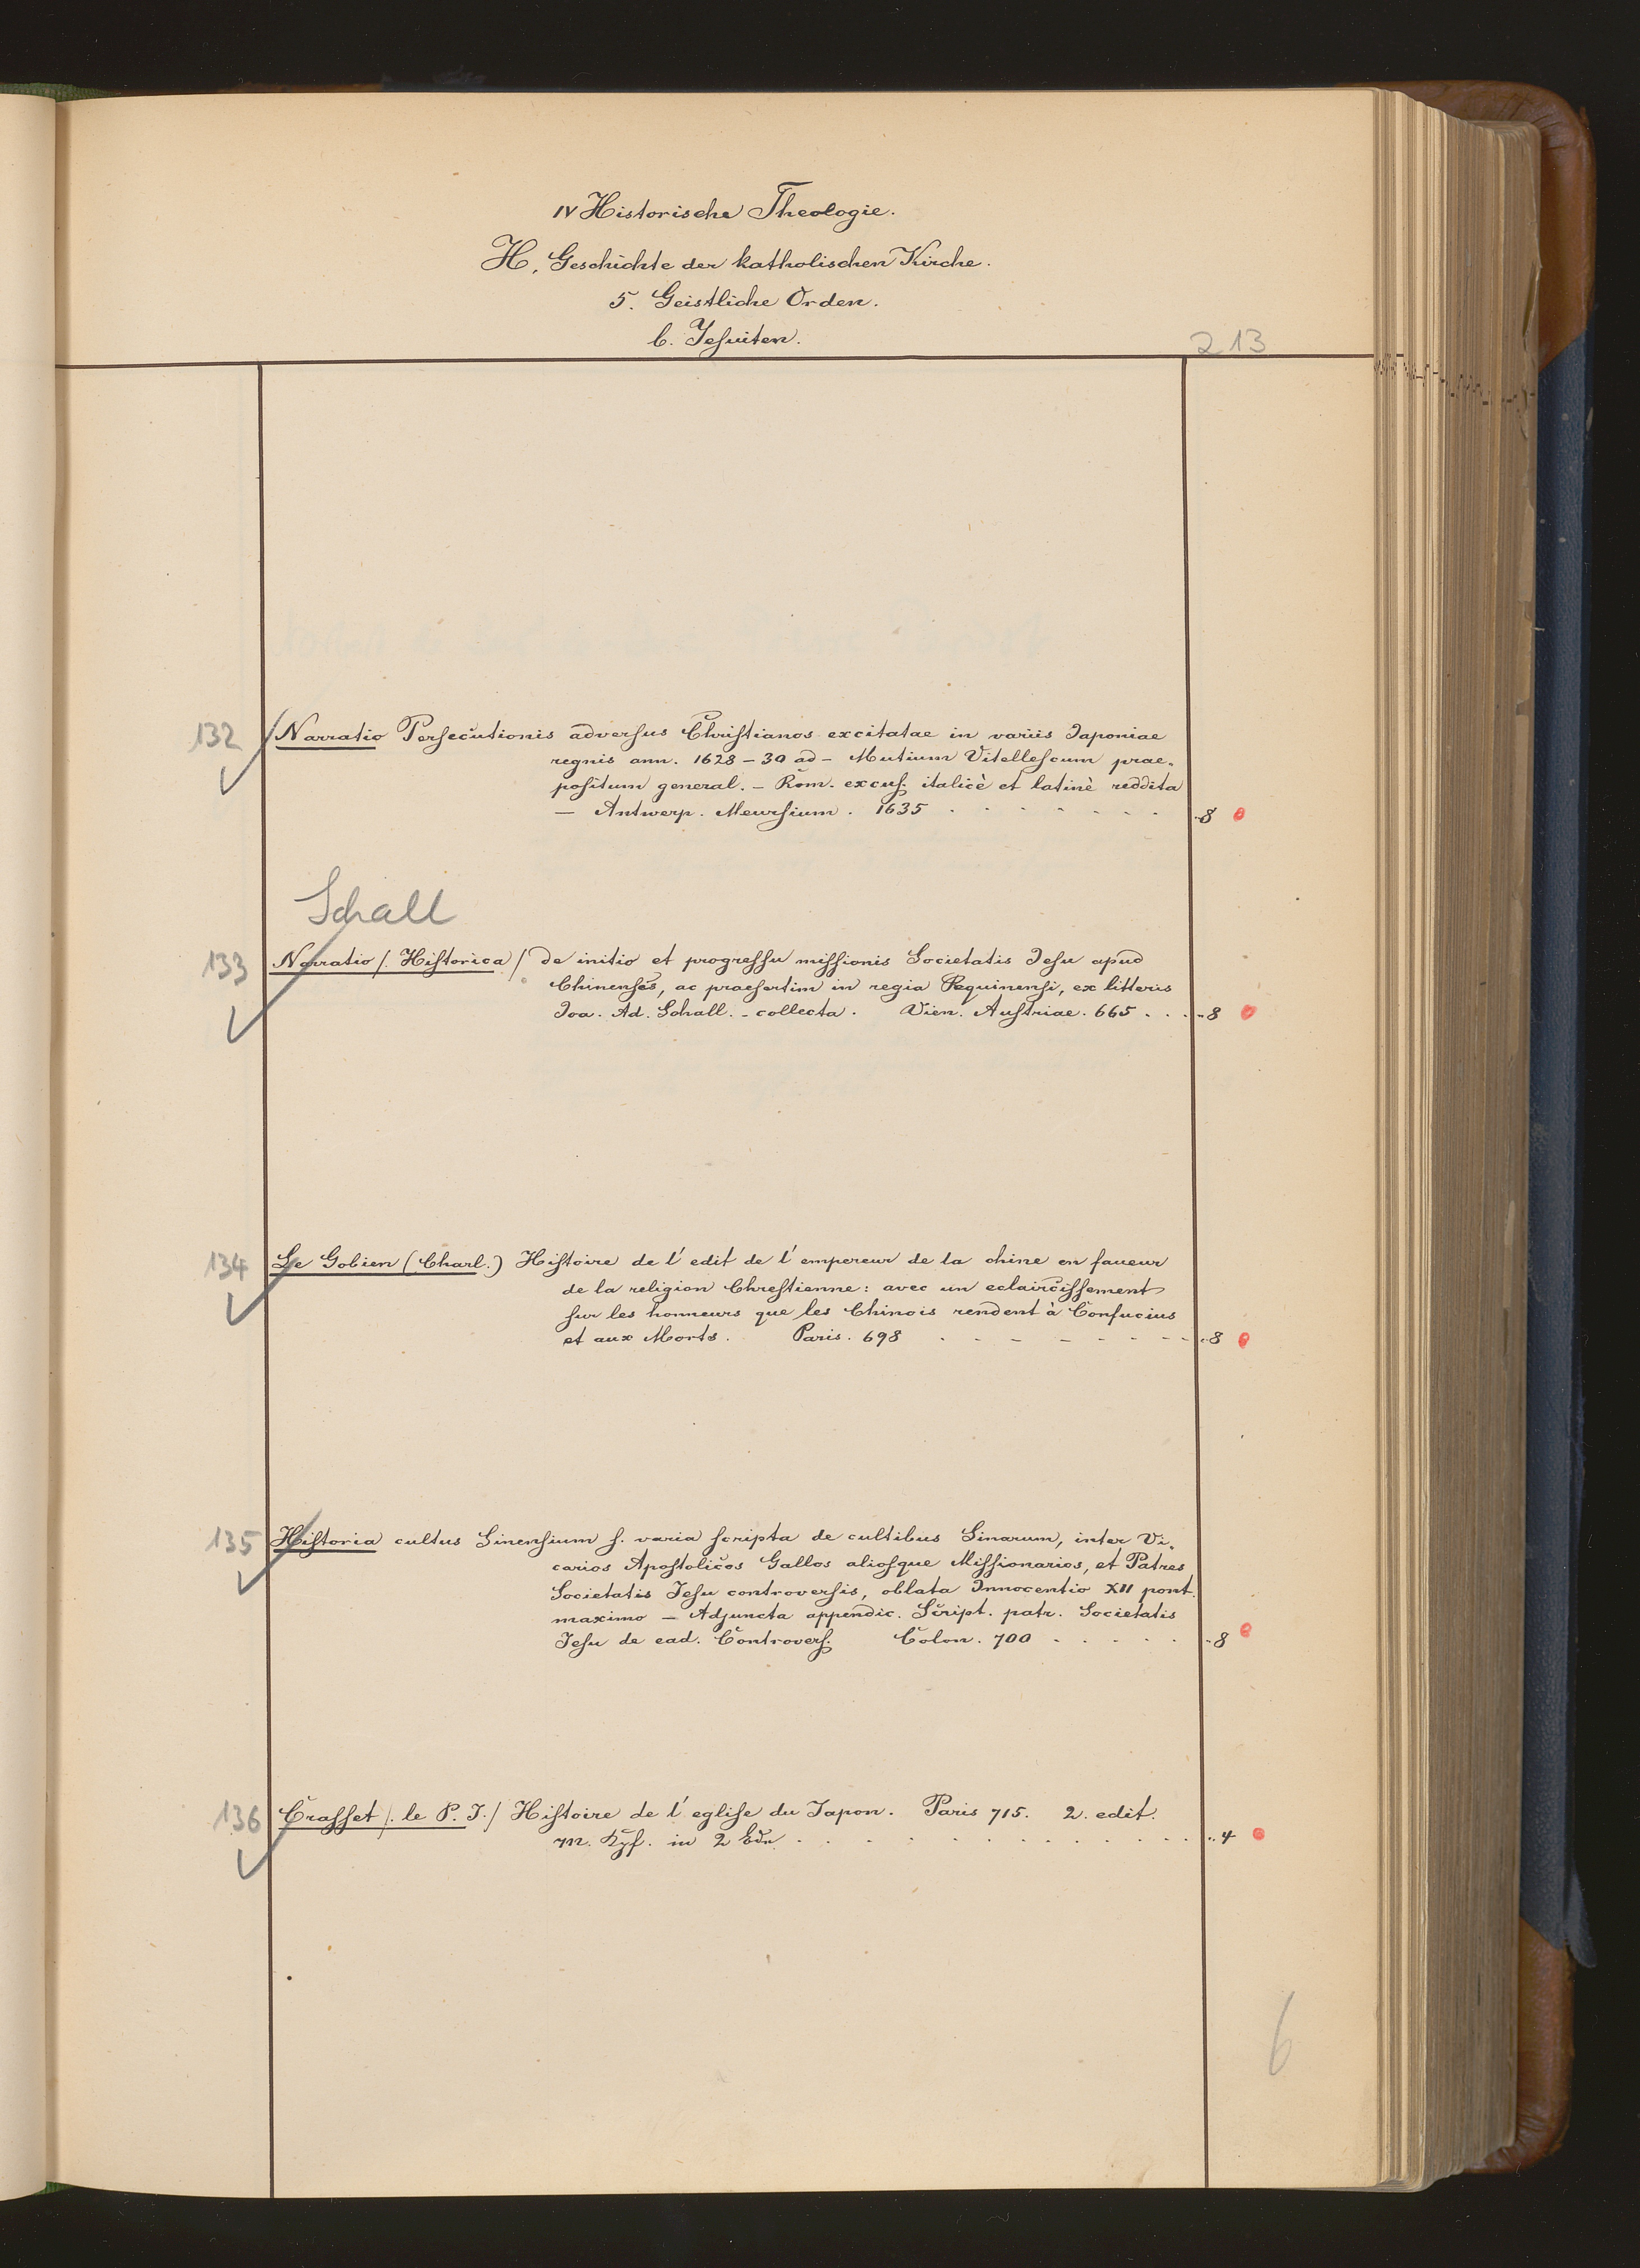 IV Historische Theologie.
H. Geschichte der katholischen Kirche.
5. Geistliche Orden.
b. Jesuiten.
213
132 Narratio Persecutionis adversus Christianos excitatae in variis Japoniae
regnis ann. 1628-30 ad - Mutium Vitellescum prae-
positum general. - Rom. excus. italicè et latinè reddita
- Antwerp. Meursium. 1635 8
Schall
133 Narratio /. Historica / de initio et progressu missionis Societatis Jesu apud
Chinenses, ac praesertim in regia Pequinensi, ex litteris
Joa. Ad. Schall. - collecta. Vien. Austriae. 665 8
134 Le Gobien (Charl.) Histoire de l'edit de l'empereur de la chine en faueur
de la religion Chrestienne: avec un eclaircissement
sur les honneurs que les Chinois rendent à Confucius
et aux Morts. Paris. 698 8
135 Historia cultus Sinensium s. varia scripta de cultibus Sinarum, inter Vi-
carios Apostolicos Gallos aliosque Missionarios, et Patres
Societatis Jesu controversis, oblata Innocentio XII pont.
maximo - Adjuncta appendic. Script. patr. Societatis
Jesu de ead. Controvers. Colon. 700 8
136 Crasset /. le P. J. / Histoire de l'eglise du Japon. Paris 715. 2. edit.
m. Kpf. in 2 Bdn. 4
6